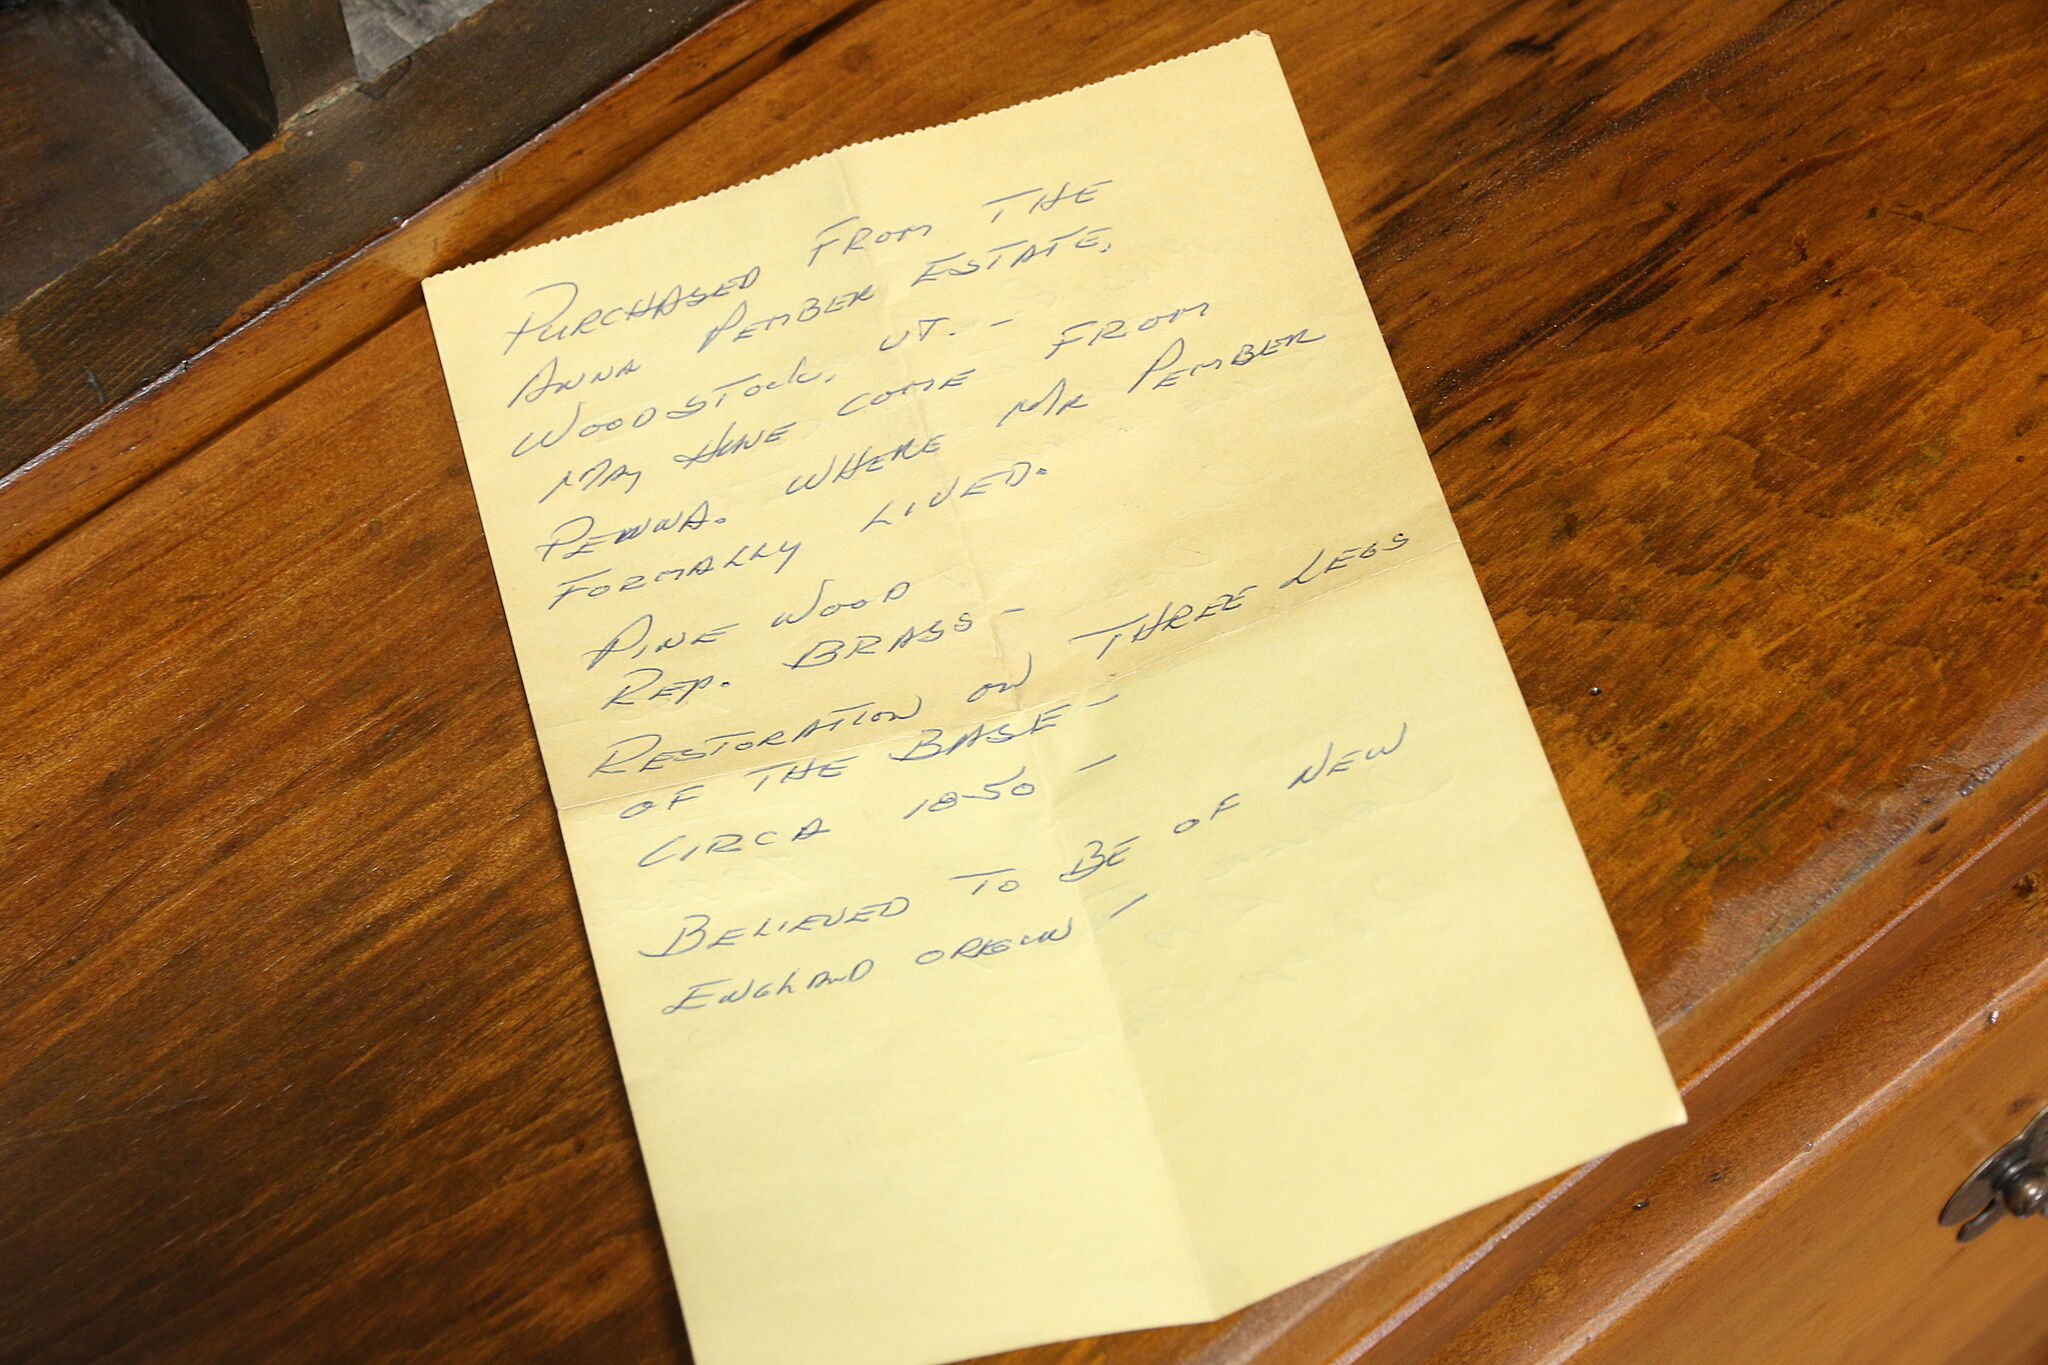 PURCHASED FROM THE
ANNA PEMBER ESTATE,
WOODSTOCK, VT. -
MAY HAVE COME FROM
PENNA. WHERE MR PEMBER
FORMALLY LIVED.
PINE WOOD
REP. BRASS -
RESTORATION ON THREE LEGS
OF THE BASE -
CIRCA 1850 -
BELIEVED TO BE OF NEW
ENGLAND OREGIN -